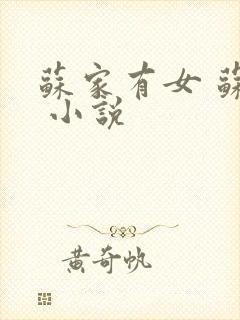 蘇家有女 蘇
小說
黃奇帆